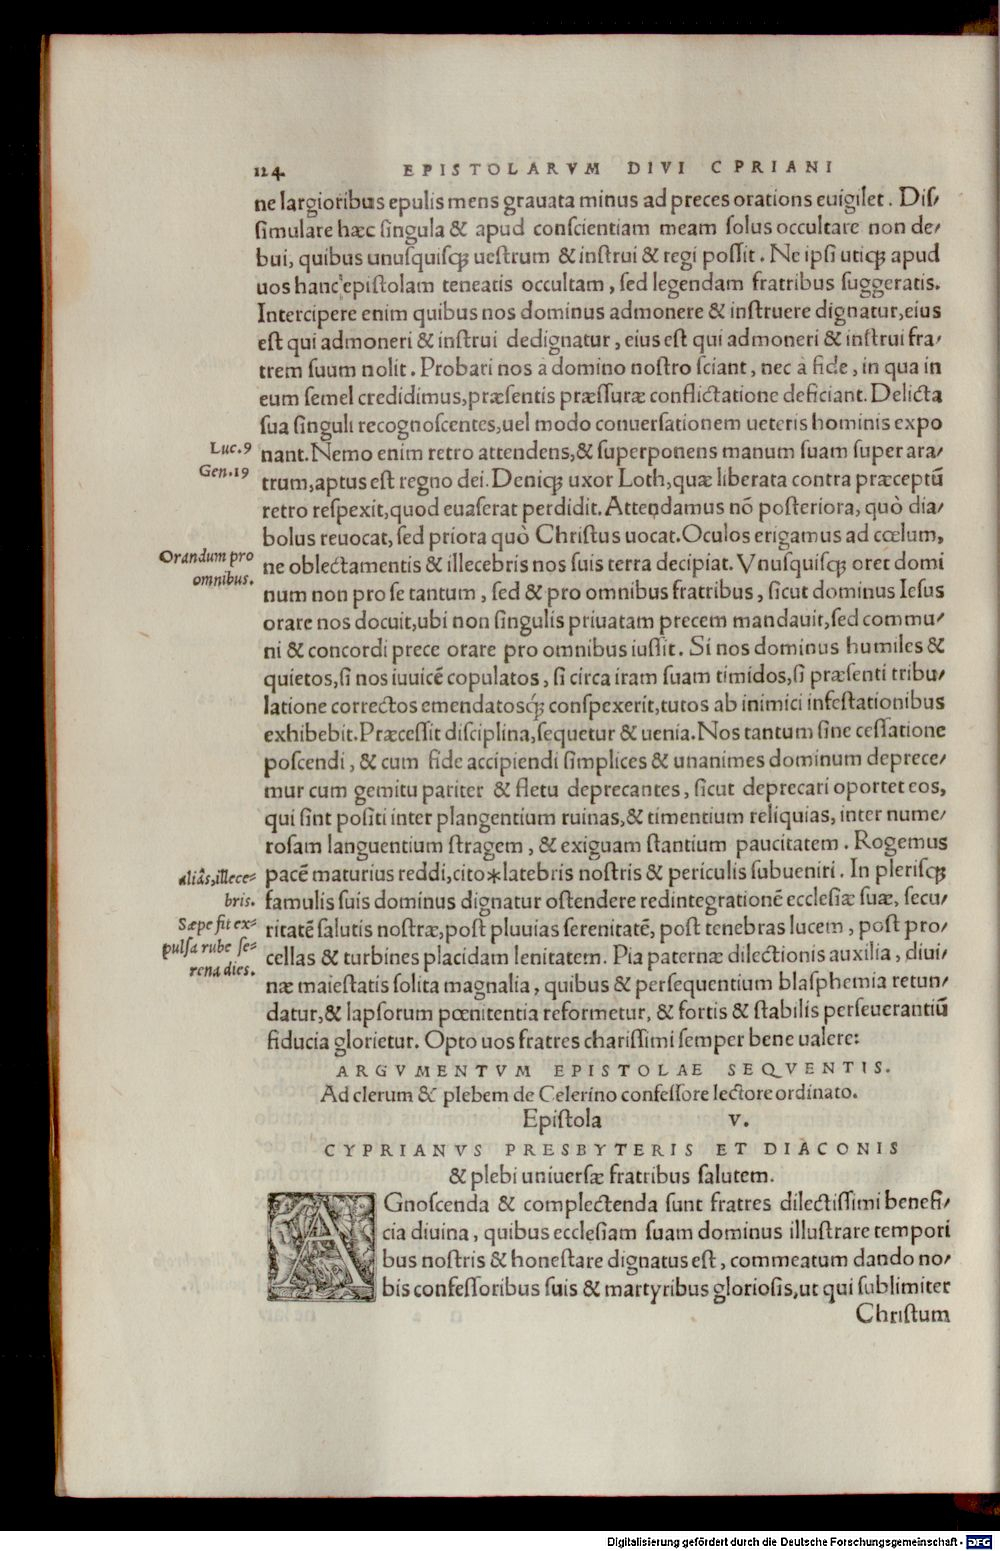 124. EPISTOLARVM DIVI CPRIANI
ne largioribus epulis mens grauata minus ad preces orations euigilet. Diſ/
ſimulare hæc ſingula & apud conſcientiam meam ſolus occultare non de/
bui, quibus unuſquiſqꝫ ueſtrum & inſtrui & regi poſſit. Ne ipſi utiqꝫ apud
uos hanc epiſtolam teneatis occultam, ſed legendam fratribus ſuggeratis.
Intercipere enim quibus nos dominus admonere & inſtruere dignatur,eius
eſt qui admoneri & inſtrui dedignatur, eius eſt qui admoneri & inſtrui fra/
trem ſuum nolit. Probari nos a domino noſtro ſciant, nec a fide, in qua in
eum ſemel credidimus,præſentis præſſuræ conflictatione deficiant. Delicta
ſua ſinguli recognoſcentes,uel modo conuerſationem ueteris hominis expo
Luc.9 nant. Nemo enim retro attendens,& ſuperponens manum ſuam ſuper ara/
Gen.19 trum,aptus eſt regno dei. Deniqꝫ uxor Loth,quæ liberata contra præceptū
retro reſpexit,quod euaſerat perdidit. Attendamus nō poſteriora, quò dia/
bolus reuocat, ſed priora quò Chriſtus uocat. Oculos erigamus ad cœlum,
Orandum pro ne oblectamentis & illecebris nos ſuis terra decipiat. Vnuſquiſqꝫ oret domi
omnibus. num non pro ſe tantum, ſed & pro omnibus fratribus, ſicut dominus Ieſus
orare nos docuit,ubi non ſingulis priuatam precem mandauit,ſed commu/
ni & concordi prece orare pro omnibus iuſſit. Si nos dominus humiles &
quietos,ſi nos iuuicē copulatos, ſi circa iram ſuam timidos,ſi præſenti tribu/
latione correctos emendatosqꝫ́ conſpexerit,tutos ab inimici infeſtationibus
exhibebit. Præceſſit diſciplina,ſequetur & uenia. Nos tantum ſine ceſſatione
poſcendi, & cum fide accipiendi ſimplices & unanimes dominum deprece/
mur cum gemitu pariter & fletu deprecantes, ſicut deprecari oportet eos,
qui ſint poſiti inter plangentium ruinas,& timentium reliquias, inter nume/
roſam languentium ſtragem, & exiguam ſtantium paucitatem. Rogemus
aliâs,illece= pacē maturius reddi,cito*latebris noſtris & periculis ſubueniri. In pleriſqꝫ
bris. famulis ſuis dominus dignatur oſtendere redintegrationē eccleſiæ ſuæ, ſecu/
Sæpe fit ex= ritatē ſalutis noſtræ,poſt pluuias ſerenitatē, poſt tenebras lucem, poſt pro/
pulſa rube ſe= cellas & turbines placidam lenitatem. Pia paternæ dilectionis auxilia, diui/
rena dies. næ maieſtatis ſolita magnalia, quibus & perſequentium blaſphemia retun/
datur,& lapſorum pœnitentia reformetur, & fortis & ſtabilis perſeuerantiū
fiducia glorietur. Opto uos fratres chariſſimi ſemper bene ualere:
ARGVMENTVM EPISTOLAE SEQVENTIS.
Ad clerum & plebem de Celerino confeſſore lectore ordinato.
Epiſtola V.
CYPRIANVS PRESBYTERIS ET DIACONIS
& plebi uniuerſæ fratribus ſalutem.
AGnoſcenda & complectenda ſunt fratres dilectiſſimi benefi/
cia diuina, quibus eccleſiam ſuam dominus illuſtrare tempori
bus noſtris & honeſtare dignatus eſt, commeatum dando no/
bis confeſſoribus ſuis & martyribus glorioſis,ut qui ſublimiter
Chriſtum
Digitalisierung gefördert durch die Deutsche Forschungsgemeinschaft - DFG